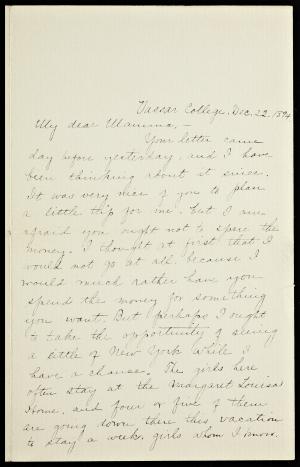 Vassar College, Dec. 22. 1894
My dear Mamma,-
Your letter came
day before yesterday, and I have
been thinking about it since.
It was very nice of you to plan
a little trip for me, but I am
afraid you ought not to spare the
money. I thought at first that I
would not go at all, because I
would much rather have you
spend the money for something
you want. But perhaps I ought
to take the opportunity of seeing
a little of New York while I
have a chance. The girls here
often stay at the Margaret Louisa
Home, and four or five of them
are going down there this vacation
to stay a week, girls whom I know.